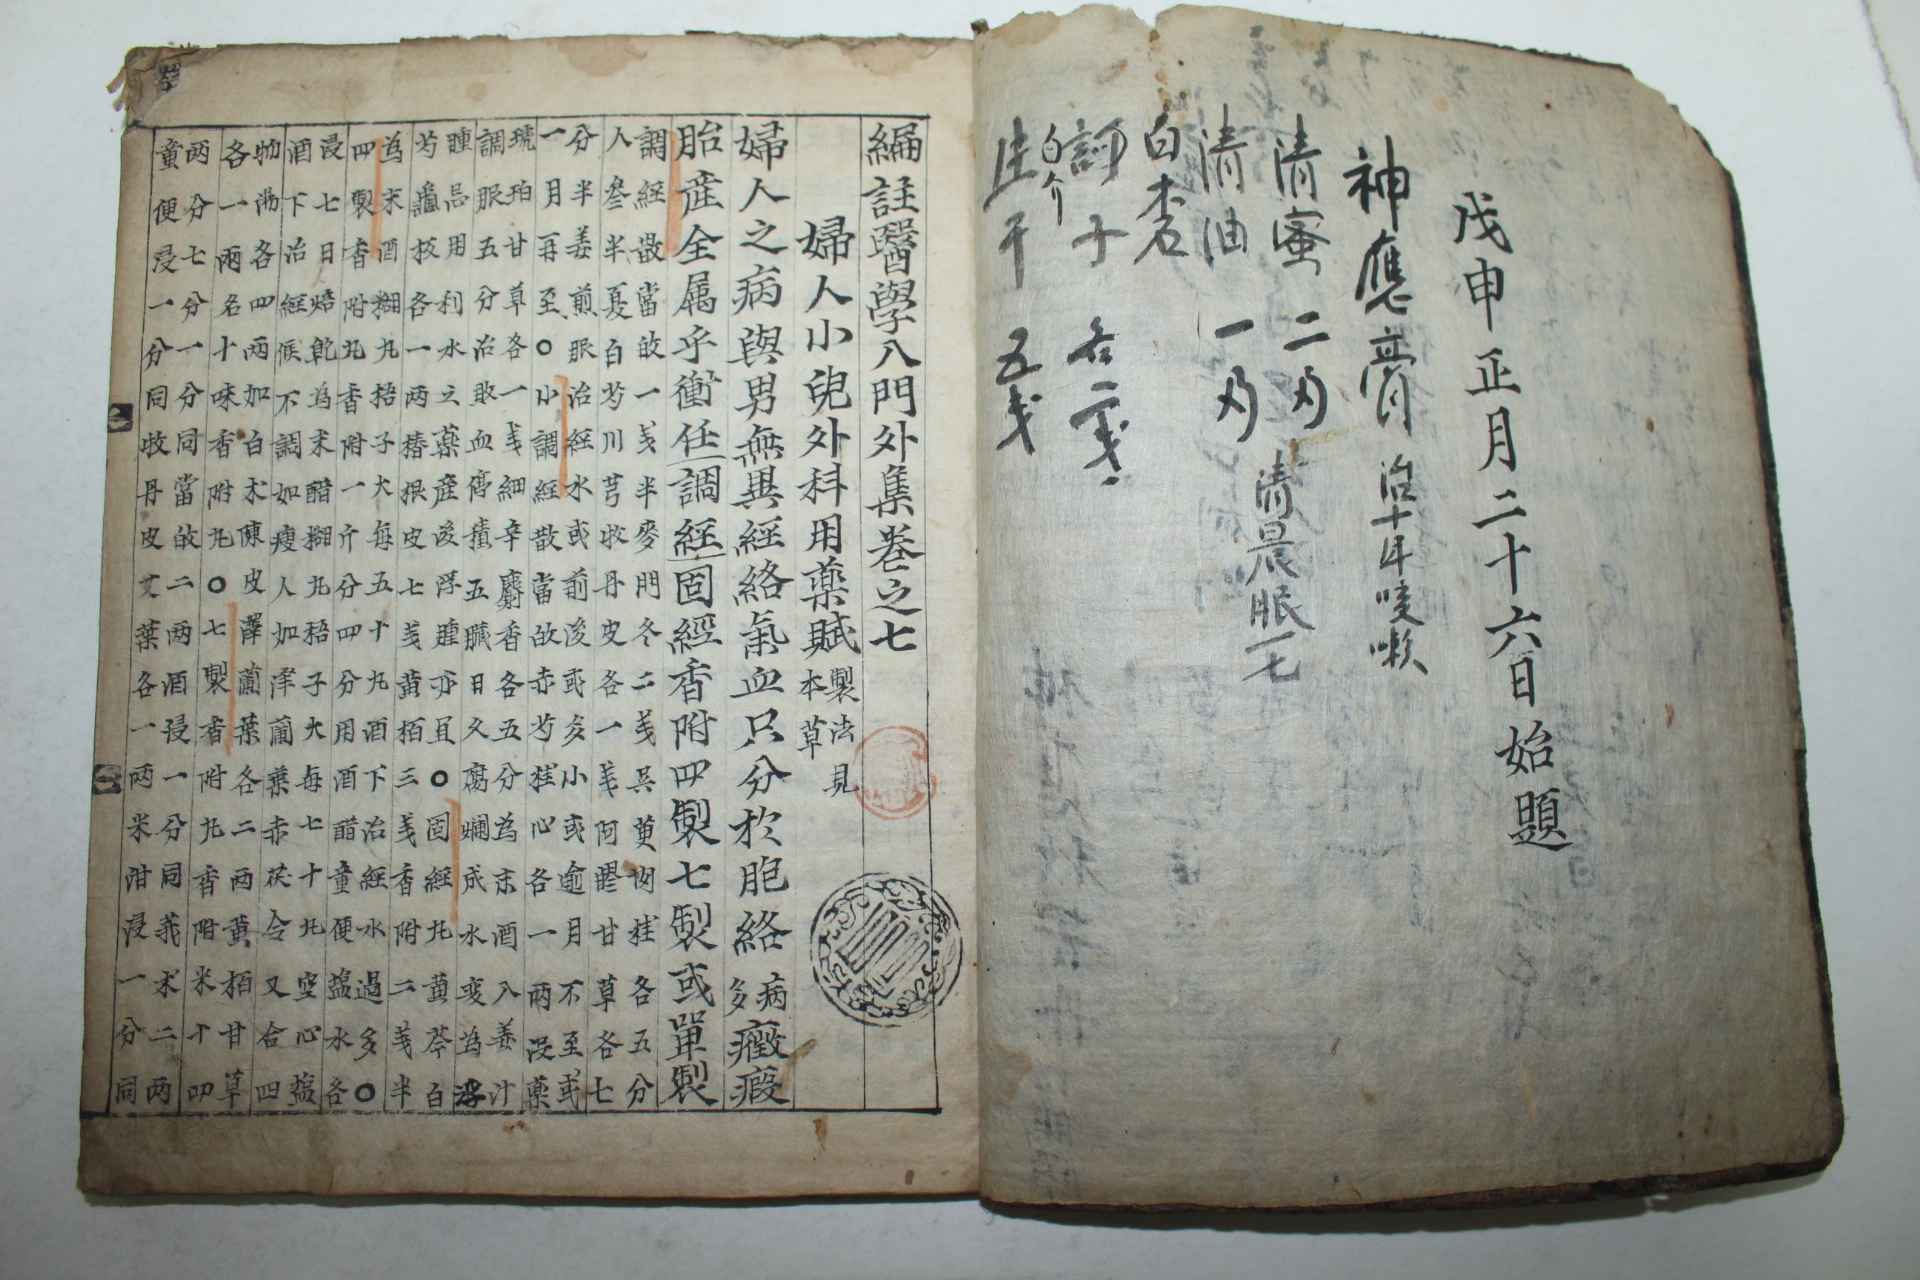 戊申正月二十六日始題
神應膏 治十年咳嗽
清蜜 二刃
清油 一刃
清晨服一匕
白杏
訶子 各二戔
白介
生干 五戔
編註醫學入門外集卷之七
婦人小兒外科用藥賦 製法見本草
婦人之病與男無異經絡氣血只分於胞絡 病多 癥瘕
胎産全属乎衝任調經固經香附四製七製或單製
調經散當故一戔半麥門冬二戔吳茰肉桂各五分
人參半夏白芍川芎牧丹皮各一戔阿膠甘草各七
分半姜煎服治經水或前後或多小或逾月不至或
一月再至○小調經散當故赤芍桂心各一兩沒藥
琥珀甘草各一戔細辛麝香各五分為末酒入姜汁
調服五分治敗血停積五臟日久腐爛成水変為浮
腫忌用利水之藥産後浮腫亦且○固經丸黄芩白
芍龜板各一兩椿根皮七戔黄栢三戔香附二戔半
為末酒糊丸梧子大每五十丸酒下治經水過多○
四製香附丸香附一斤分四分用酒醋童便塩水各
浸七日焙乾為末醋糊丸梧子大每七十丸空心塩
酒下治經候不調如瘦人加澤蘭葉赤茯令又合四
物湯各四兩加白朮陳皮澤蘭葉各二兩黄栢甘草
各一兩名十味香附丸○七製香附丸香附米十四
兩分七分一分同當故二兩酒浸一分同莪朮二兩
童便浸一分同牧丹皮艾葉各一兩米泔浸一分同